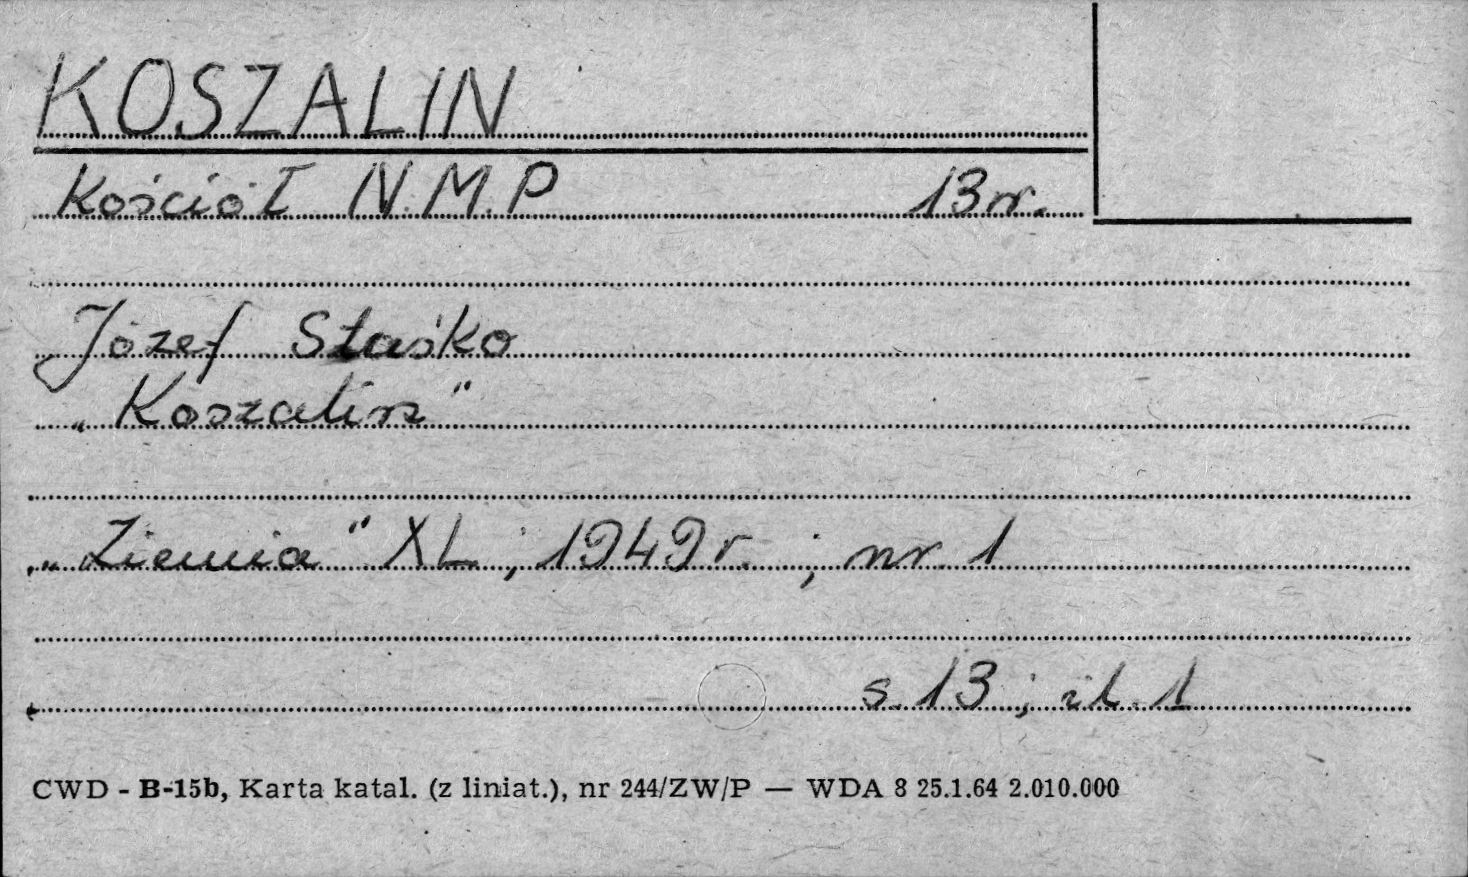 KOSZALIN
Kościół N.M.P 13 w.
Józef Staśko
„Koszalin"
„Ziemia" XL ; 1949 r. ; nr. 1
s. 13 ; il. 1
CWD - B-15b, Karta katal. (z liniat.), nr 244/ZW/P — WDA 8 25.1.64 2.010.000